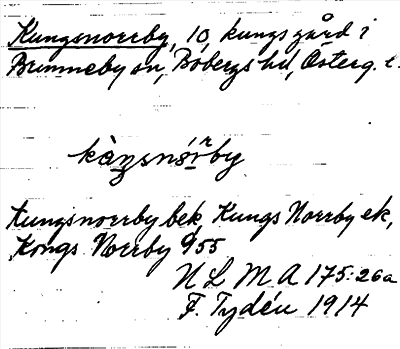 Kungsnorrby, 10, kungsgård i
Brunneby sn, Bobergs hd, Österg. l.
kàŋsnórby
Kungsnorrby bek, Kungs Norrby ek,
Kongs Norrby 9/55
N L M A 175:26a
F. Tydén 1914